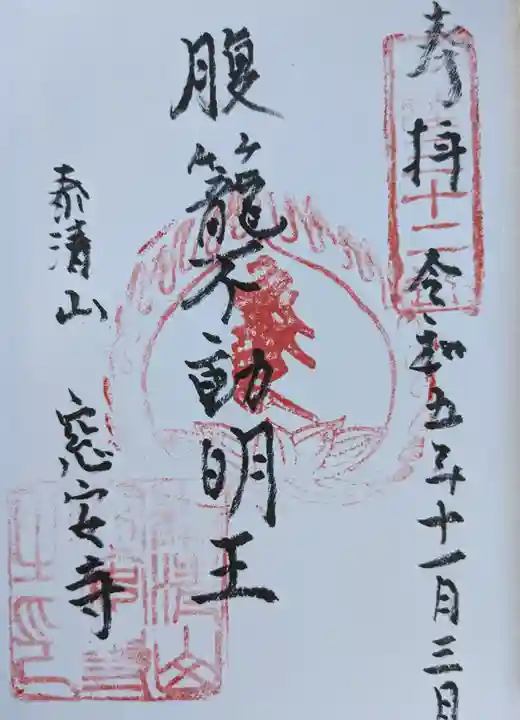 奉拝
令和五年十一月三日
腹籠不動明王
泰清山
窓安寺
十二